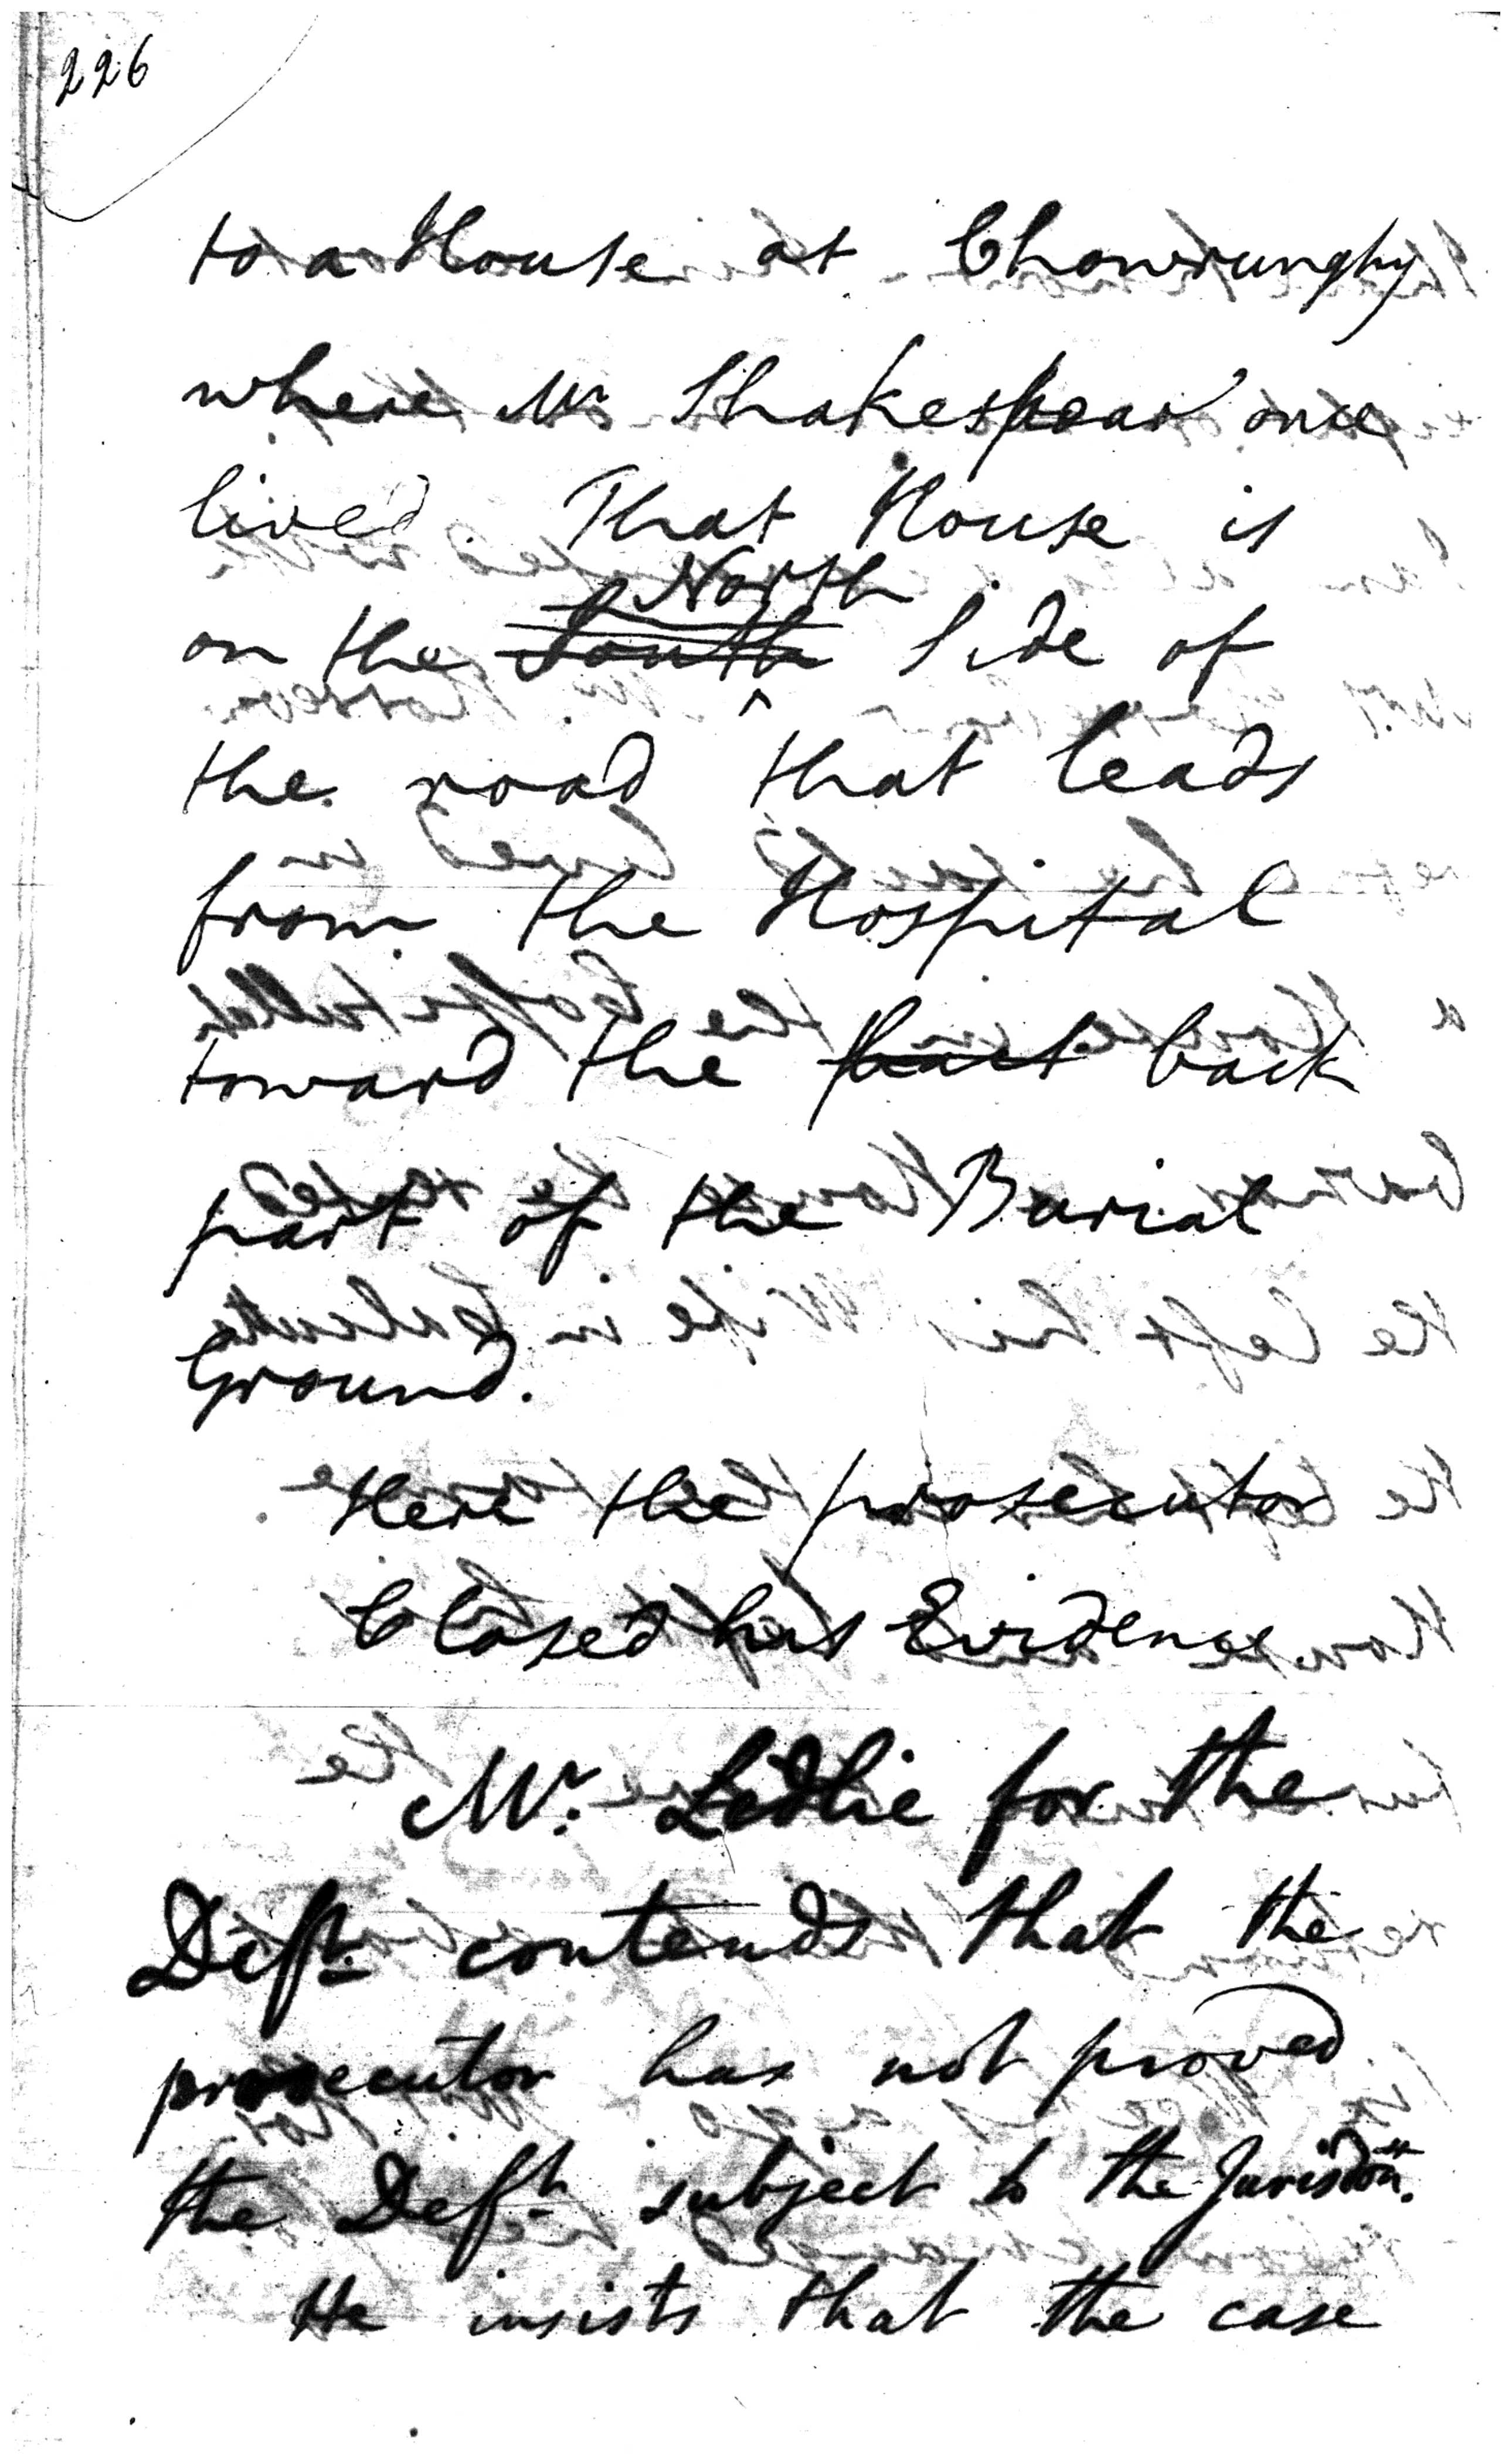 226
to a House at Chowringhy
where Mr Shakespear once
lived. That House is
North
on the South Side of
the road that leads
from the Hospital
toward the back
part of the Burial
Ground.
Here the prosecutor
Closed his Evidence
Mr. Ledlie for the
Deft. contends that the
prosecutor has not proved
the Deft. subject to the Jurisdon.
He insists that the case